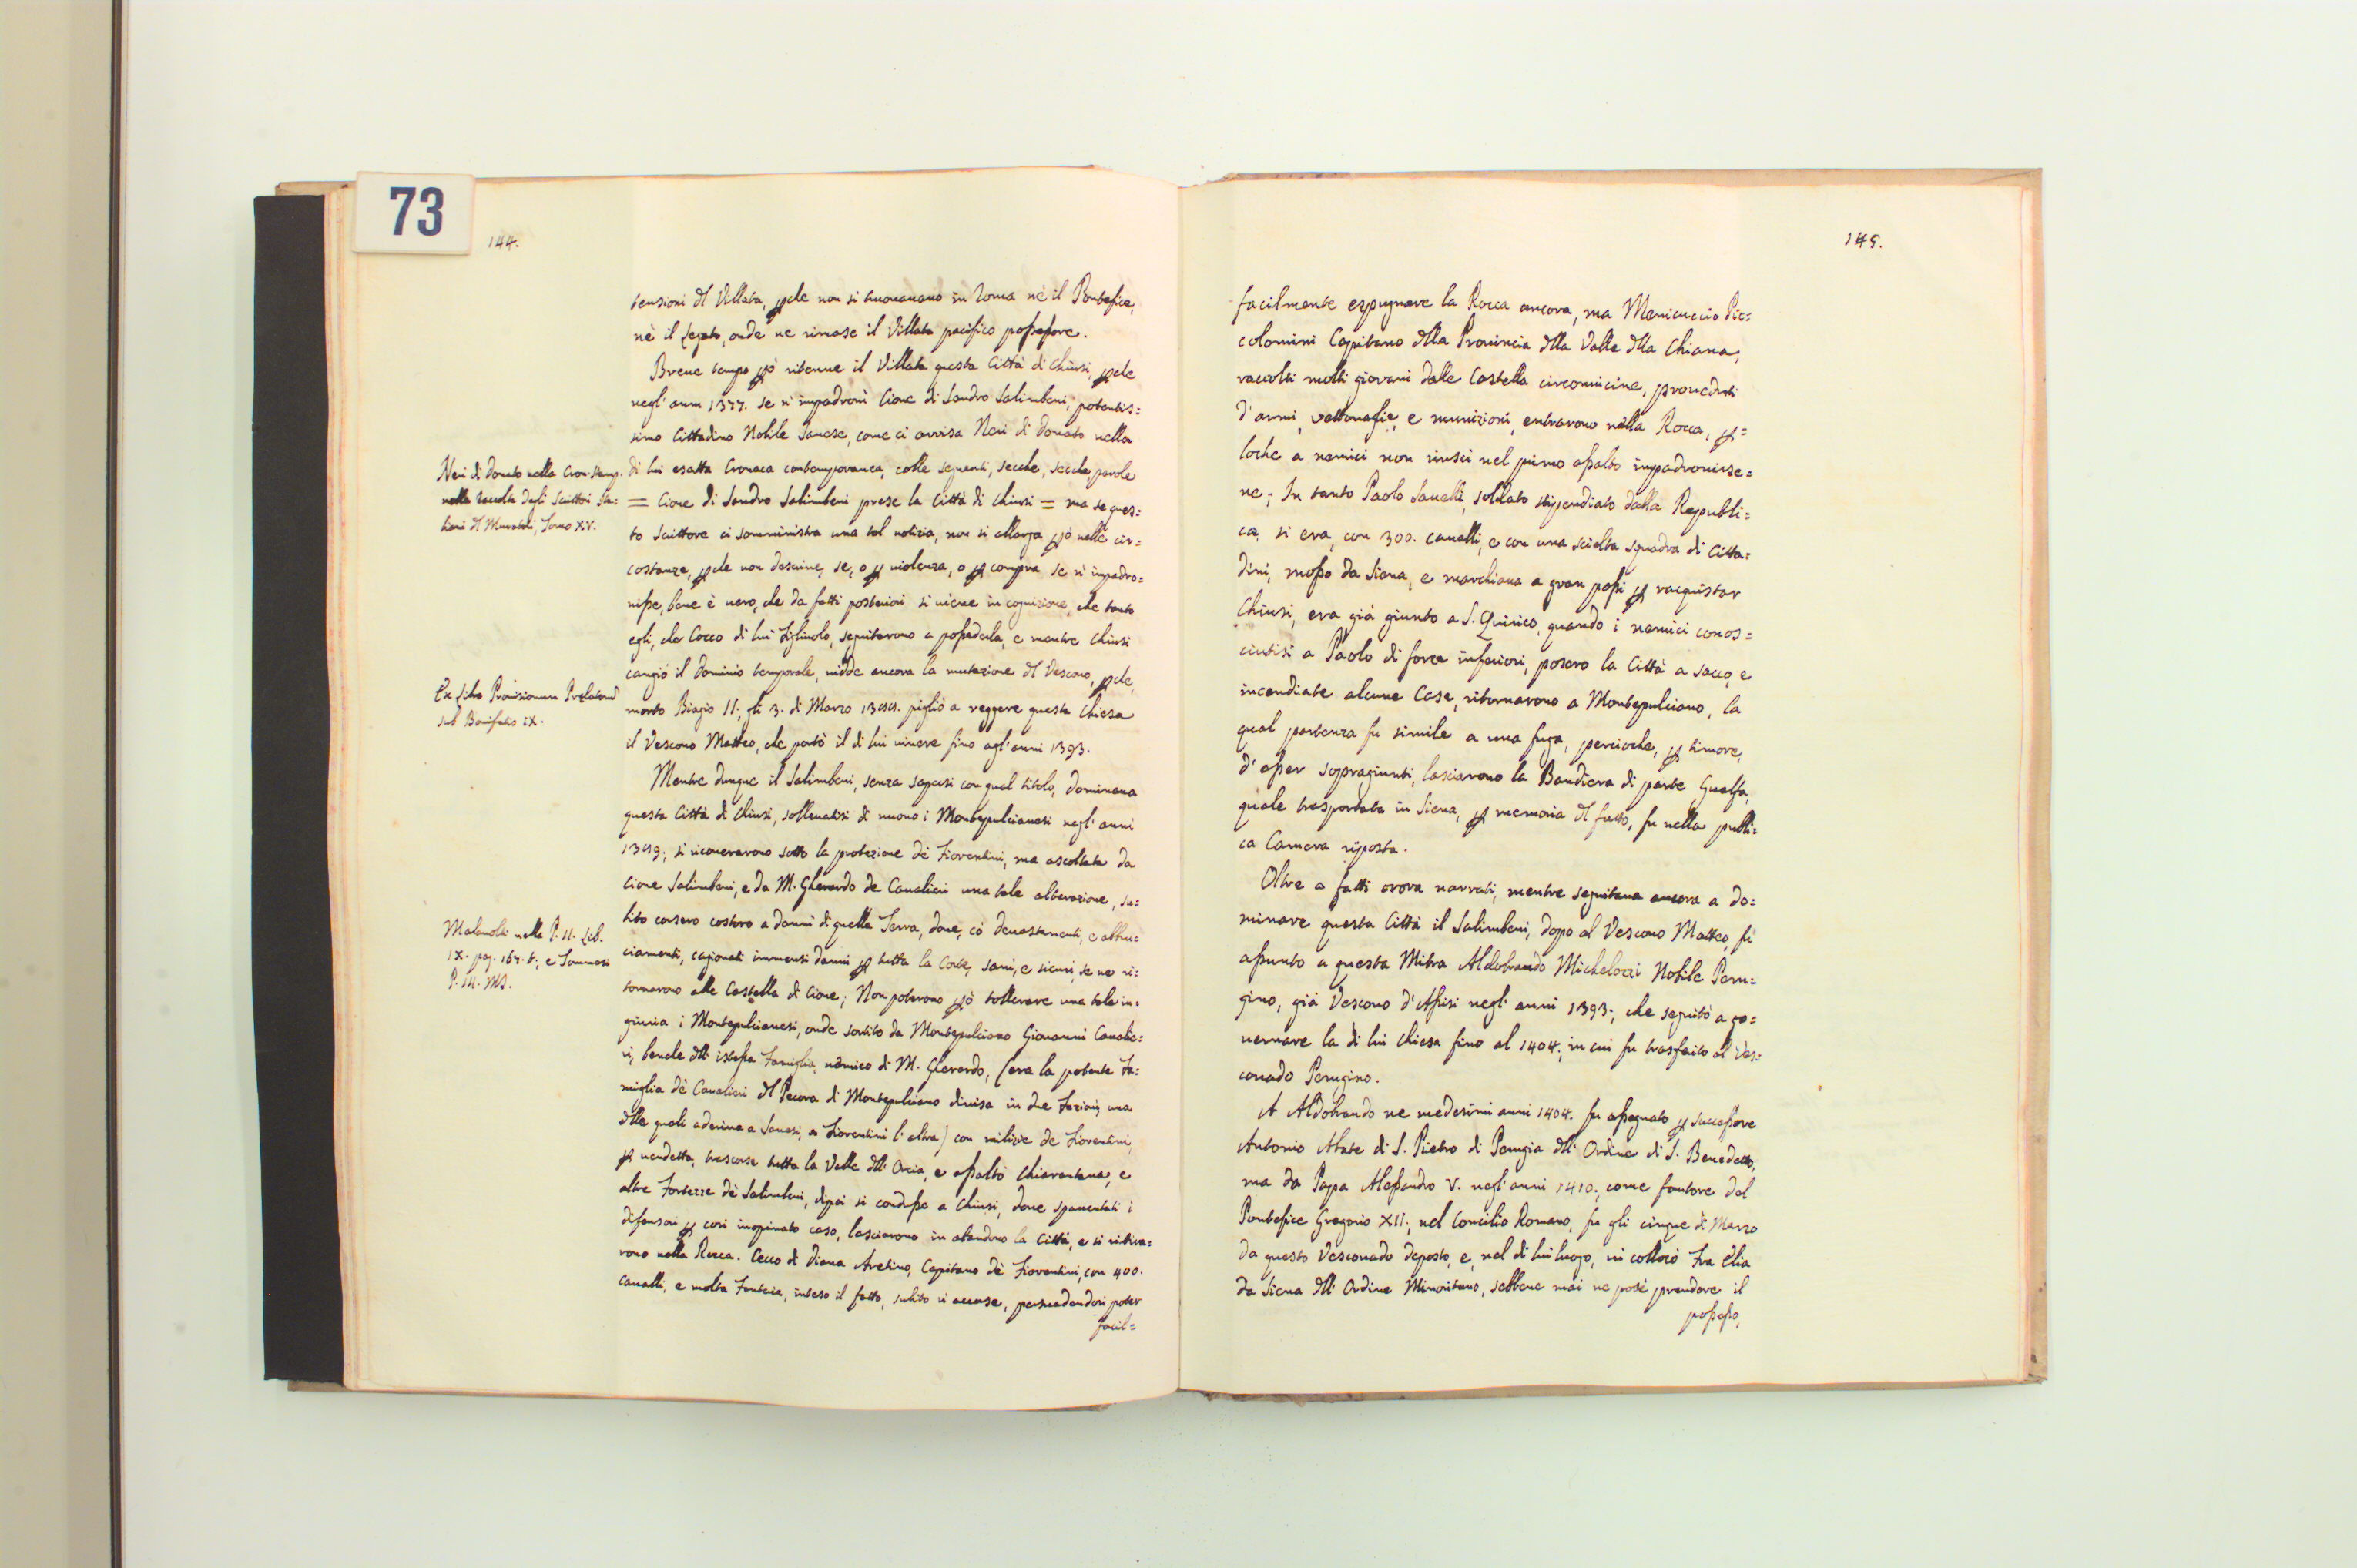 73
144.
tensioni dl Villata, pche non si truovavano in Roma nè il Pontefice,
nè il Legato, onde ne rimase il Villata pacifico possessore.
Breve tempo pò ritenne il Villata questa Città di Chiusi, pche
negl' anni 1377. se n' impadronì Cione di Sandro Salimbeni, potentis=
simo Cittadino Nobile Sanese, come ci avvisa Neri di Donato nella
di lui esatta Cronaca contemporanea, colle seguenti, secche, secche parole
= Cione di Sandro Salimbeni prese la Città di Chiusi = ma se ques=
to Scrittore ci somministra una tal notizia, non si allarga pò nelle cir=
costanze, pche non descrive, se, o p violenza, o p compra se n' impadro=
nisse, bene è vero, che da fatti posteriori si viene in cognizione, che tanto
egli, che Cocco di lui Figliuolo, seguitarono a possederla, e mentre Chiusi
cangiò il Dominio temporale, vidde ancora la mutazione dl Vescovo, pche,
morto Biagio II:, gli 3. di Marzo pigliò a reggere questa Chiesa
il Vescovo Matteo, che portò il di lui vivere fino agl' anni 1393.
Mentre dunque il Salimbeni, senza sapersi con qual titolo, dominava
questa Città di Chiusi, sollevatisi di nuovo i Montepulcianesi negl' anni
si ricoverarono sotto la protezione de' Fiorentini, ma ascoltata da
Cione Salimbeni, e da M. Gherardo de Cavalieri una tale alterazione, su=
bito corsero costoro a danni di quella Terra, dove, cò devastamenti, e abbru=
ciamenti, cagionati immensi danni p tutta la Corte, sani, e sicuri, se ne ri=
tornarono alle Castella di Cione; Non poterono pò tollerare una tale in=
giuria i Montepulcianesi, onde sortito da Montepulciano Giovanni Cavalie=
ri, benche dll' istessa Famiglia, nemico di M. Gherardo, (era la potente Fa=
miglia de' Cavalieri dl Pecora di Montepulciano divisa in due fazioni, una
dlle quali aderiva a Sanesi, a Fiorentini l' altra) con milizie de Fiorentini,
p vendetta, trascorse tutta la Valle dll' Orcia, e assaltò Chiarentana, e
altre Fortezze de' Salimbeni, dipoi si condusse a Chiusi, dove spaventati i
difensori p così inopinato caso, lasciarono in abandono la Città, e si ritira=
rono nella Rocca. Cecco di Diana Aretino, Capitano de' Fiorentini, con 400.
Cavalli, e molta Fanteria, inteso il fatto, subito vi accorse, persuadendosi poter
facil=
Neri di Donato nella Cron. stamp.
nella raccolta degli Scrittori Ita=
liani dl Muratori, Tomo XV.
Ex Libro Provisionum Prelatorum
sub Bonifatio IX.
Malavolti nella P. II. Lib.
IX. pag. 167. t:, e Tommasi
P. III. MS.
145.
facilmente espugnare la Rocca ancora, ma Meniccuccio Pic=
colomini Capitano dlla Provincia dlla Valle dlla Chiana,
raccolti molti giovani dalle Castella circonvicine, proveduti
d' armi, vettovaglie, e munizioni, entrarono nella Rocca, p=
loche a nemici non riuscì nel primo assalto impadronirse=
ne; In tanto Paolo Savelli, soldato stipendiato dalla Republi=
ca, si era, con 300. cavalli, e con una scielta squadra di Citta=
dini, mosso da Siena, e marchiava a gran passi p racquistar
Chiusi, era già giunto a S. Quirico, quando i nemici conos=
ciutisi a Paolo di forze inferiori, posero la Città a sacco, e
incendiate alcune Case, ritornarono a Montepulciano, la
qual partenza fu simile a una fuga, percioche, p timore,
d' esser sopragiunti, lasciarono la Bandiera di parte Guelfa,
quale trasportata in Siena, p memoria dl fatto, fu nella publi=
ca Camera riposta.
Oltre a fatti orora narrati, mentre seguitava ancora a do=
minare questa Città il Salimbeni, dopo al Vescovo Matteo, fù
assunto a questa Mitra Aldobrando Michelozzi Nobile Peru=
gino, già Vescovo d' Assisi negl' anni 1393:, che seguitò a go=
vernare la di lui Chiesa fino al 1404:, in cui fu trasferito al Ves=
covado Perugino.
A Aldobrando ne medesimi anni 1404. fu assegnato p successore
Antonio Abate di S. Pietro di Perugia dll' Ordine di S. Benedetto,
ma da Papa Alessandro V. negl' anni 1410:, come fautore del
Pontefice Gregorio XII:, nel Concilio Romano, fu gli cinque di Marzo
da questo Vescovado deposto, e, nel di lui luogo, vi collocò Fra Elia
da Siena dll' Ordine Minoritano, sebbene mai ne potè prendere il
possesso,